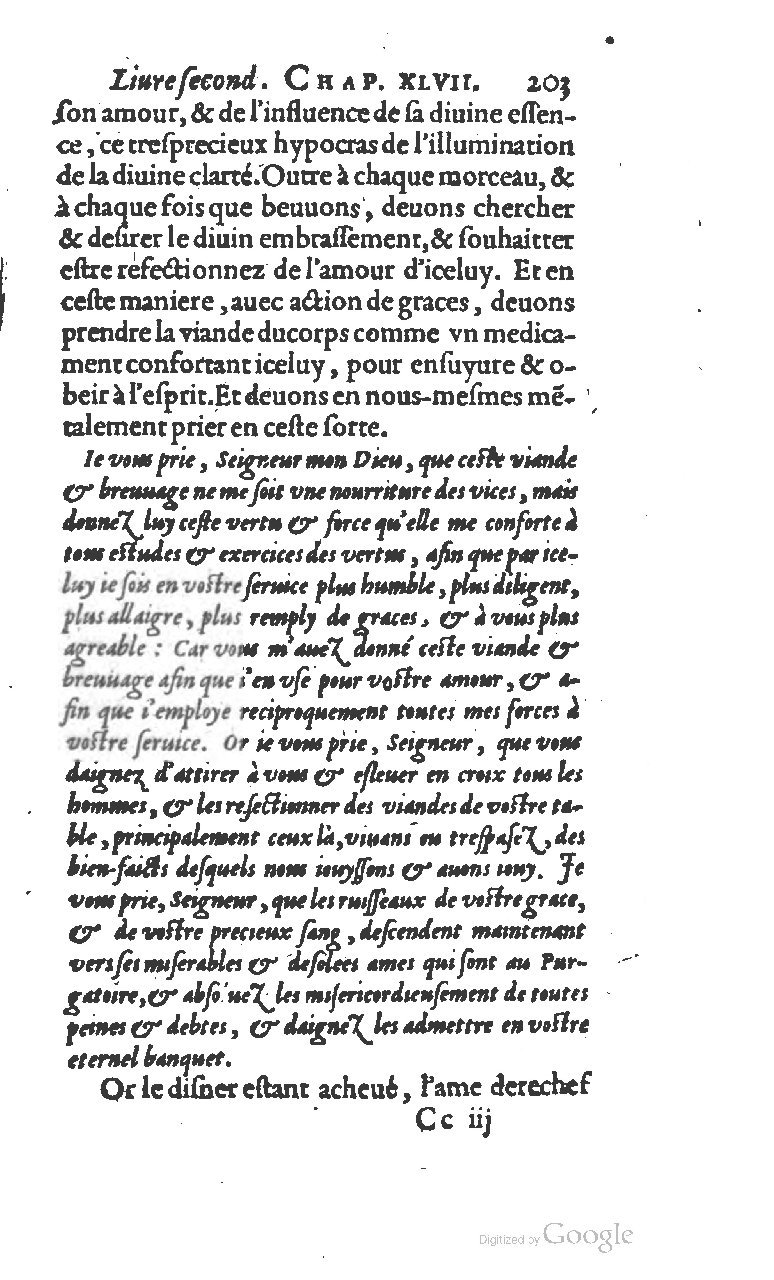 Liure ſecond. CHAP. XLVII. 203
ſon amour, & de l'influence de ſa diuine eſſen-
ce, ce treſprecieux hypocras de l'illumination
de la diuine clarté. Outre à chaque morceau, &
à chaque fois que beuuons, deuons chercher
& deſirer le diuin embraſſement, & ſouhaitter
eſtre réfectionnez de l'amour d'iceluy. Et en
ceſte maniere, auec action de graces, deuons
prendre la viande du corps comme vn medica-
ment confortant iceluy, pour enſuyure & o-
beir à l'eſprit. Et deuons en nous-meſmes mē-
talement prier en ceſte ſorte.
Ie vous prie, Seigneur mon Dieu, que ceſte viande
& breuuage ne me ſoit vne nourriture des vices, mais
donnez luy ceſte vertu & force qu'elle me conforte à
tous eſtudes & exercices des vertus, afin que par ice-
luy ie ſois en voſtre ſeruice plus humble, plus diligent,
plus allaigre, plus remply de graces, & à vous plus
agreable : Car vous m'auez donné ceſte viande &
breuuage afin que i'en vſe pour voſtre amour, & a-
fin que i'employe reciproquement toutes mes forces à
voſtre ſeruice. Or ie vous prie, Seigneur, que vous
daignez d'attirer à vous & eſleuer en croix tous les
hommes, & les refectionner des viandes de voſtre ta-
ble, principalement ceux là, viuans ou treſpaſez, des
bien-faicts deſquels nous iouyſſons & auons iouy. Je
vous prie, Seigneur, que les ruiſſeaux de voſtre grace,
& de voſtre precieux ſang, deſcendent maintenant
vers ſes miſerables & deſolees ames qui ſont au Pur-
gatoire, & abſoluez les miſericordieuſement de toutes
peines & debtes, & daignez les admettre en voſtre
eternel banquet.
Or le diſner eſtant acheué, l'ame derechef
Cc iij
Digitized by Google